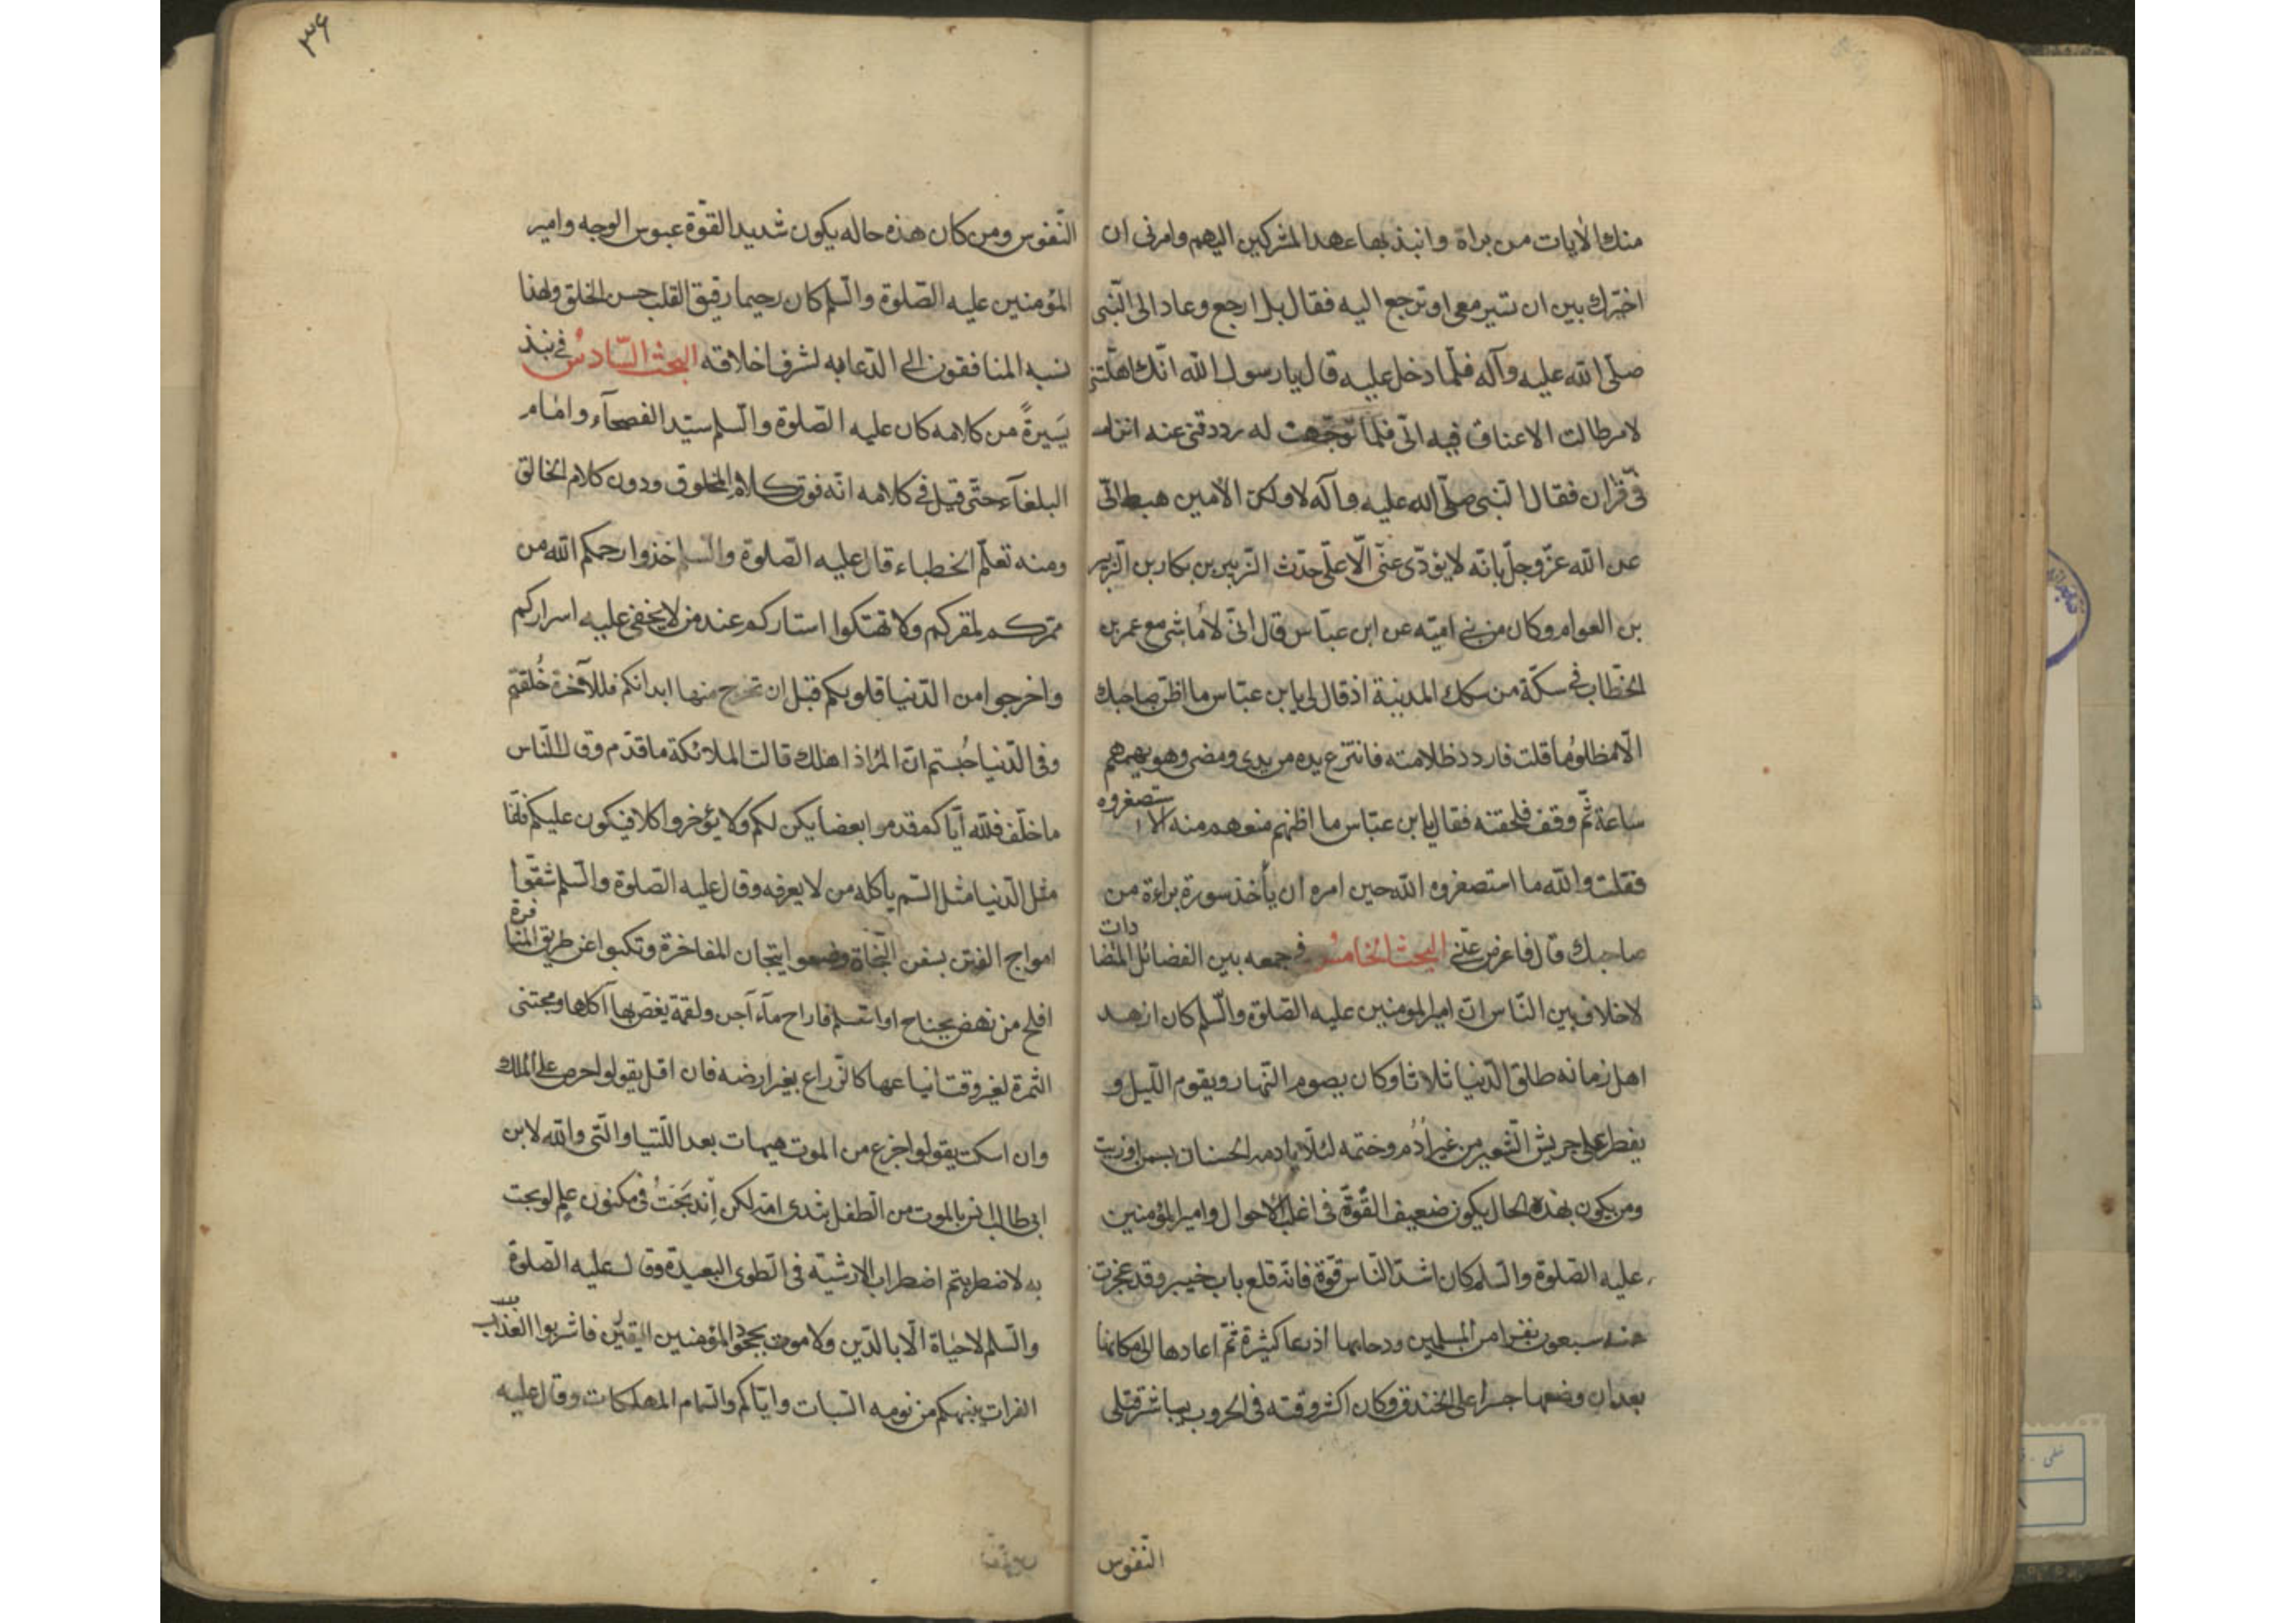 منك الأيات من براة وانبذ بها عهد المشركين اليهم وامرنى ان
اخيّرك بين ان تسير معى او ترجع اليه فقال بل ارجع وعاد الى النّبى
صلّى الله عليه وآله فلمّا دخل عليه قال يا رسول الله انّك اهّلتنى
لامر طالت الاعناق فيه الىّ فلمّا توجّهت له رددتنى عنه انزل
فىّ قرآن فقال النّبى صلّى الله عليه وآله لا ولكن الأمين هبط الىّ
عن الله عزّ وجلّ بانّه لا يؤدّى عنّى الّا علىّ حدّث الزّبير بن بكار بن الزّبير
بن العوام وكان من بنى اميّه عن ابن عبّاس قال انّى لأماشى مع عمر بن
الخطّاب فى سكّة من سكك المدينة اذ قال لى يا بن عبّاس ما اظنّ صاحبك
الّا مظلوما قلت فاردد ظلامته فانتزع يده من يدى ومضى وهو يهمهم
ساعة ثمّ وقف فلحقته فقال يا بن عبّاس ما اظنهم منعوهم منه الا استصغروه
فقلت والله ما استصغروه الله حين امره ان يأخذ سورة براءة من
صاحبك قال فاعرض عنّى البحث الخامس فى جمعه بين الفضائل المتضادات
لا خلاف بين النّاس انّ امير المؤمنين عليه الصّلوة والسّلم كان ازهد
اهل زمانه طلق الدّنيا ثلاثا وكان يصوم النّهار ويقوم اللّيل و
يفطر على جريش الشّعير من غير أدُم وختمه لئلّا يادمه الحسنان بسمن او زيت
ومن يكون بهذه الحال يكون ضعيف القوّة فى اغلب الأحوال وامير المؤمنين
عليه الصّلوة والسّلم كان اشدّ النّاس قوّة فانّه قلع باب خيبر وقد عجزت
عنه سبعون نفرا من المسلمين ودحا بها اذرعا كثيرة ثمّ اعادها الى مكانها
بعد ان وضعها جسرا على الخندق وكان اكثر وقته فى الحروب يباشر قتلى
النّفوس
٣۶
النّفوس ومن كان هذه حاله يكون شديد القوّة عبوس الوجه وامير
المؤمنين عليه الصّلوة والسّلم كان رحيما رقيق القلب حسن الخلق ولهذا
نسبه المنافقون الى الدّعابه لشرف اخلاقه البحث السّادس فى نبذ
يَسيرةً من كلامه كان عليه الصّلوة والسّلم سيّد الفصحآء وامام
البلغآء حتّى قيل فى كلامه انّه فوق كلام المخلوق ودون كلام الخالق
ومنه تعلّم الخطباء قال عليه الصّلوة والسلم خذوا رحمكم الله من
ممرّكم لمقرّكم ولا تهتكوا استاركم عند من لا يخفى عليه اسراركم
واخرجوا من الدّنيا قلوبكم قبل ان تخرج منها ابدانكم فللآخرة خُلقتم
وفى الدّنيا حُبستم انّ المرْ اذا هلك قالت الملائكة ما قدّم وقال النّاس
ما خلّف فلله آباكم قدموا بعضا يكن لكم ولا يؤخروا كلا فيكون عليكم فانّما
مثل الدّنيا مثل السّم يأكله من لا يعرفه وقال عليه الصّلوة والسّلم شقّوا
امواج الفتن بسفن النّجاة وضعوا تيجان المفاخرة وتكبوا عن طريق المنافرة
افلح من نهض بجناح او استسلم فاراح مآء آجن ولقمة يغصّ بها آكلها ومجتنى
الثمرة لغير وقت ايناعها كالزّراع بغير ارضه فان اقل يقولوا حرص على الملك
وان اسكت يقولوا جزع من الموت هيهات بعد اللّتيا والّتى والله لابن
ابى طالب انس بالموت من الطفل بثدى امّه لكن اندمجتُ فى مكنون علم لو بحت
به لاضطربتم اضطراب الارشية فى الطوى البعيدة وقال عليه الصّلوة
والسّلم لا حياة الّا بالدّين ولا موت بجحود المؤمنين اليقين فاشربوا العذاب
الفرات ينبهكم من نومه السّبات وايّاكم والسّمام المهلكات وقال عليه